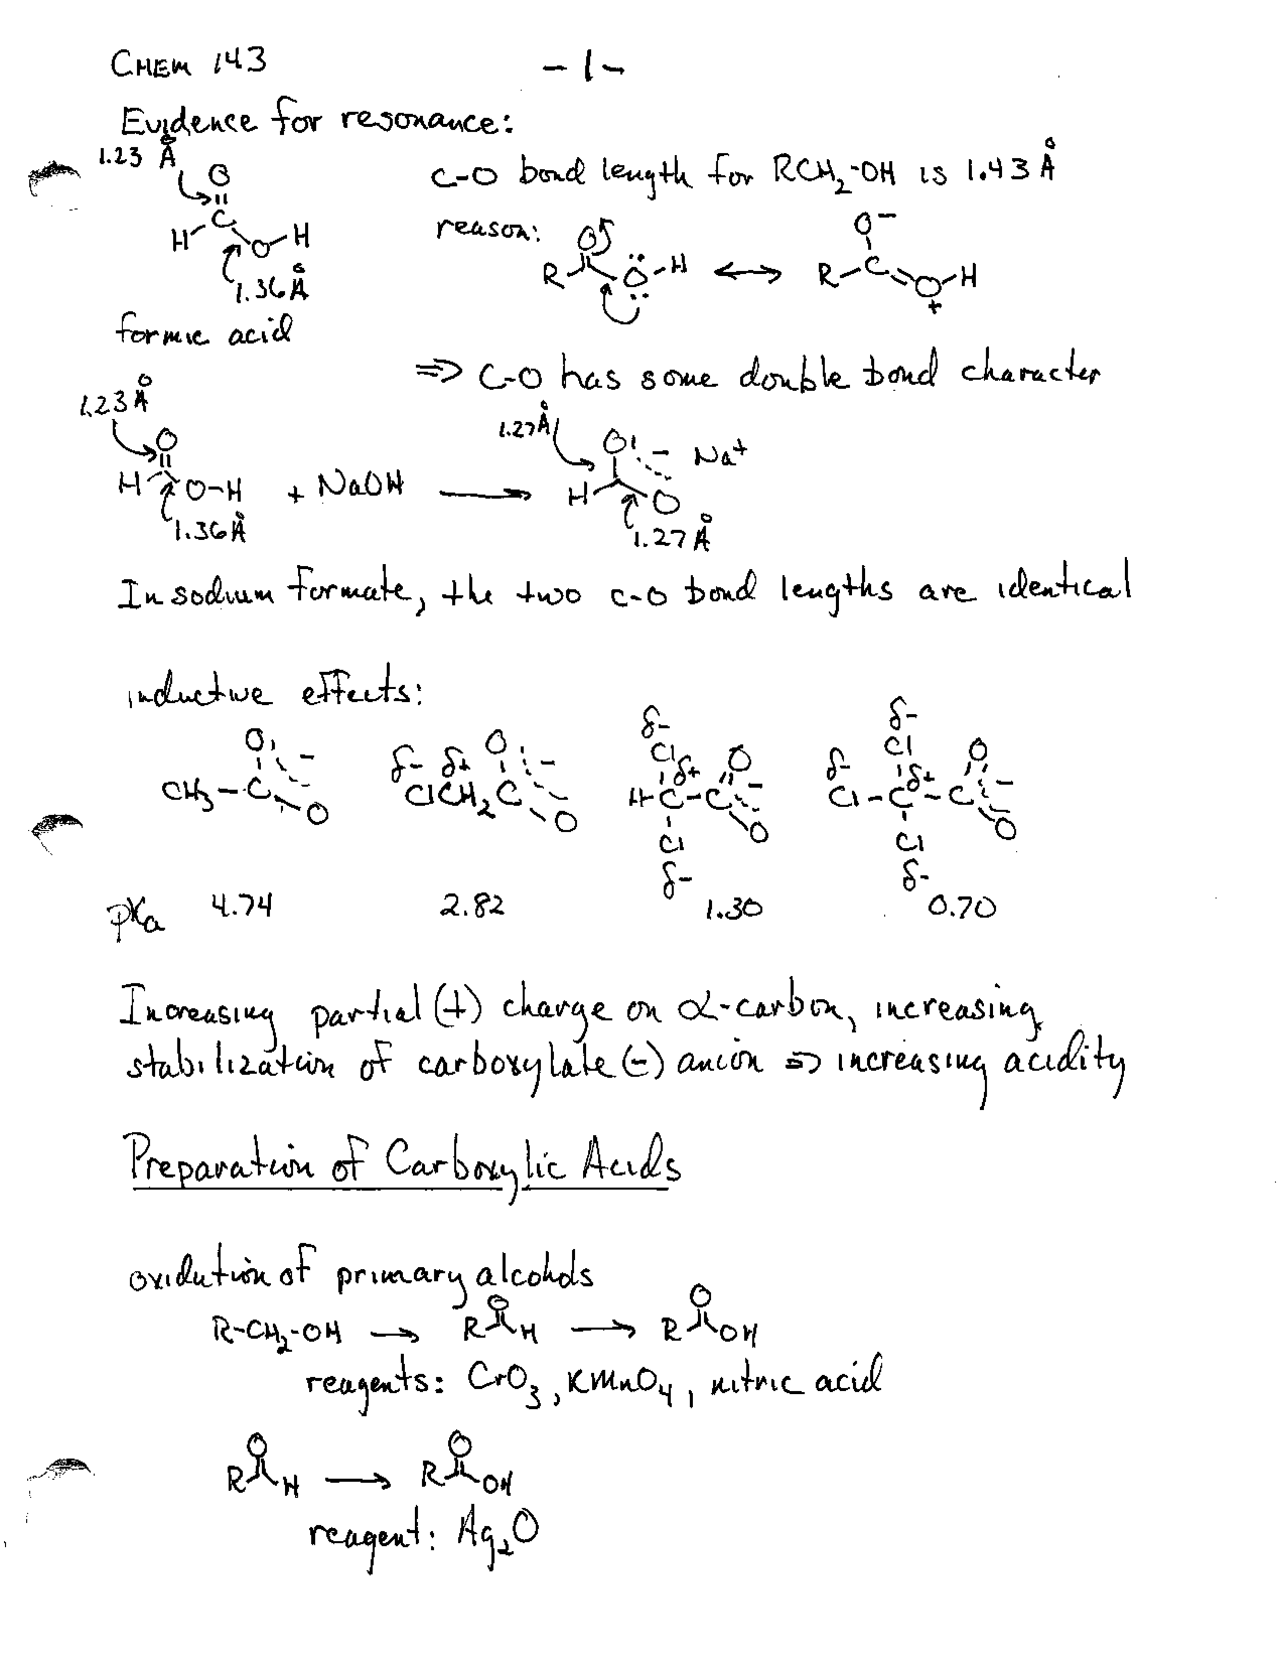 CHEM 143
-1-
Evidence for resonance:
1.23 Å
O
C
H
O-H
1.36 Å
formic acid
C-O bond length for RCH₂-OH is 1.43 Å
reason:
O
R
O-H
↔
O⁻
R-C=O-H
+
⇒ C-O has some double bond character
1.23 Å
O
H
O-H
1.36 Å
+ NaOH
→
1.27 Å
O
- Na⁺
H
O
1.27 Å
In sodium formate, the two C-O bond lengths are identical
inductive effects:
O
-
CH₃-C
O
δ- δ+
O
-
ClCH₂C
O
δ-
Cl
δ+
O
-
H-C-C
O
Cl
δ-
δ-
Cl
δ-
δ+
O
-
Cl-C-C
O
Cl
δ-
pKa 4.74 2.82 1.30 0.70
Increasing partial (+) charge on α-carbon, increasing
stabilization of carboxylate (-) anion ⇒ increasing acidity
Preparation of Carboxylic Acids
oxidation of primary alcohols
O O
R-CH₂-OH → R H → R OH
reagents: CrO₃, KMnO₄, nitric acid
O O
R H → R OH
reagent: Ag₂O